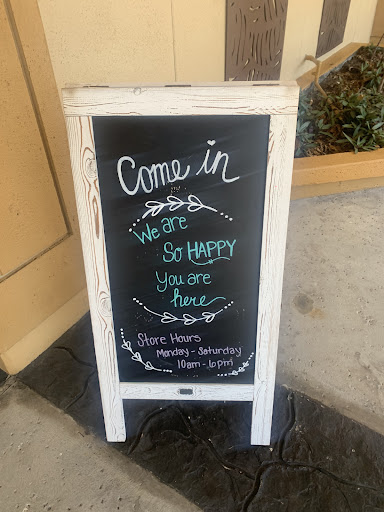 Come in
We are
So HAPPY
You are
here
Store Hours
Monday - Saturday
10am - 6pm